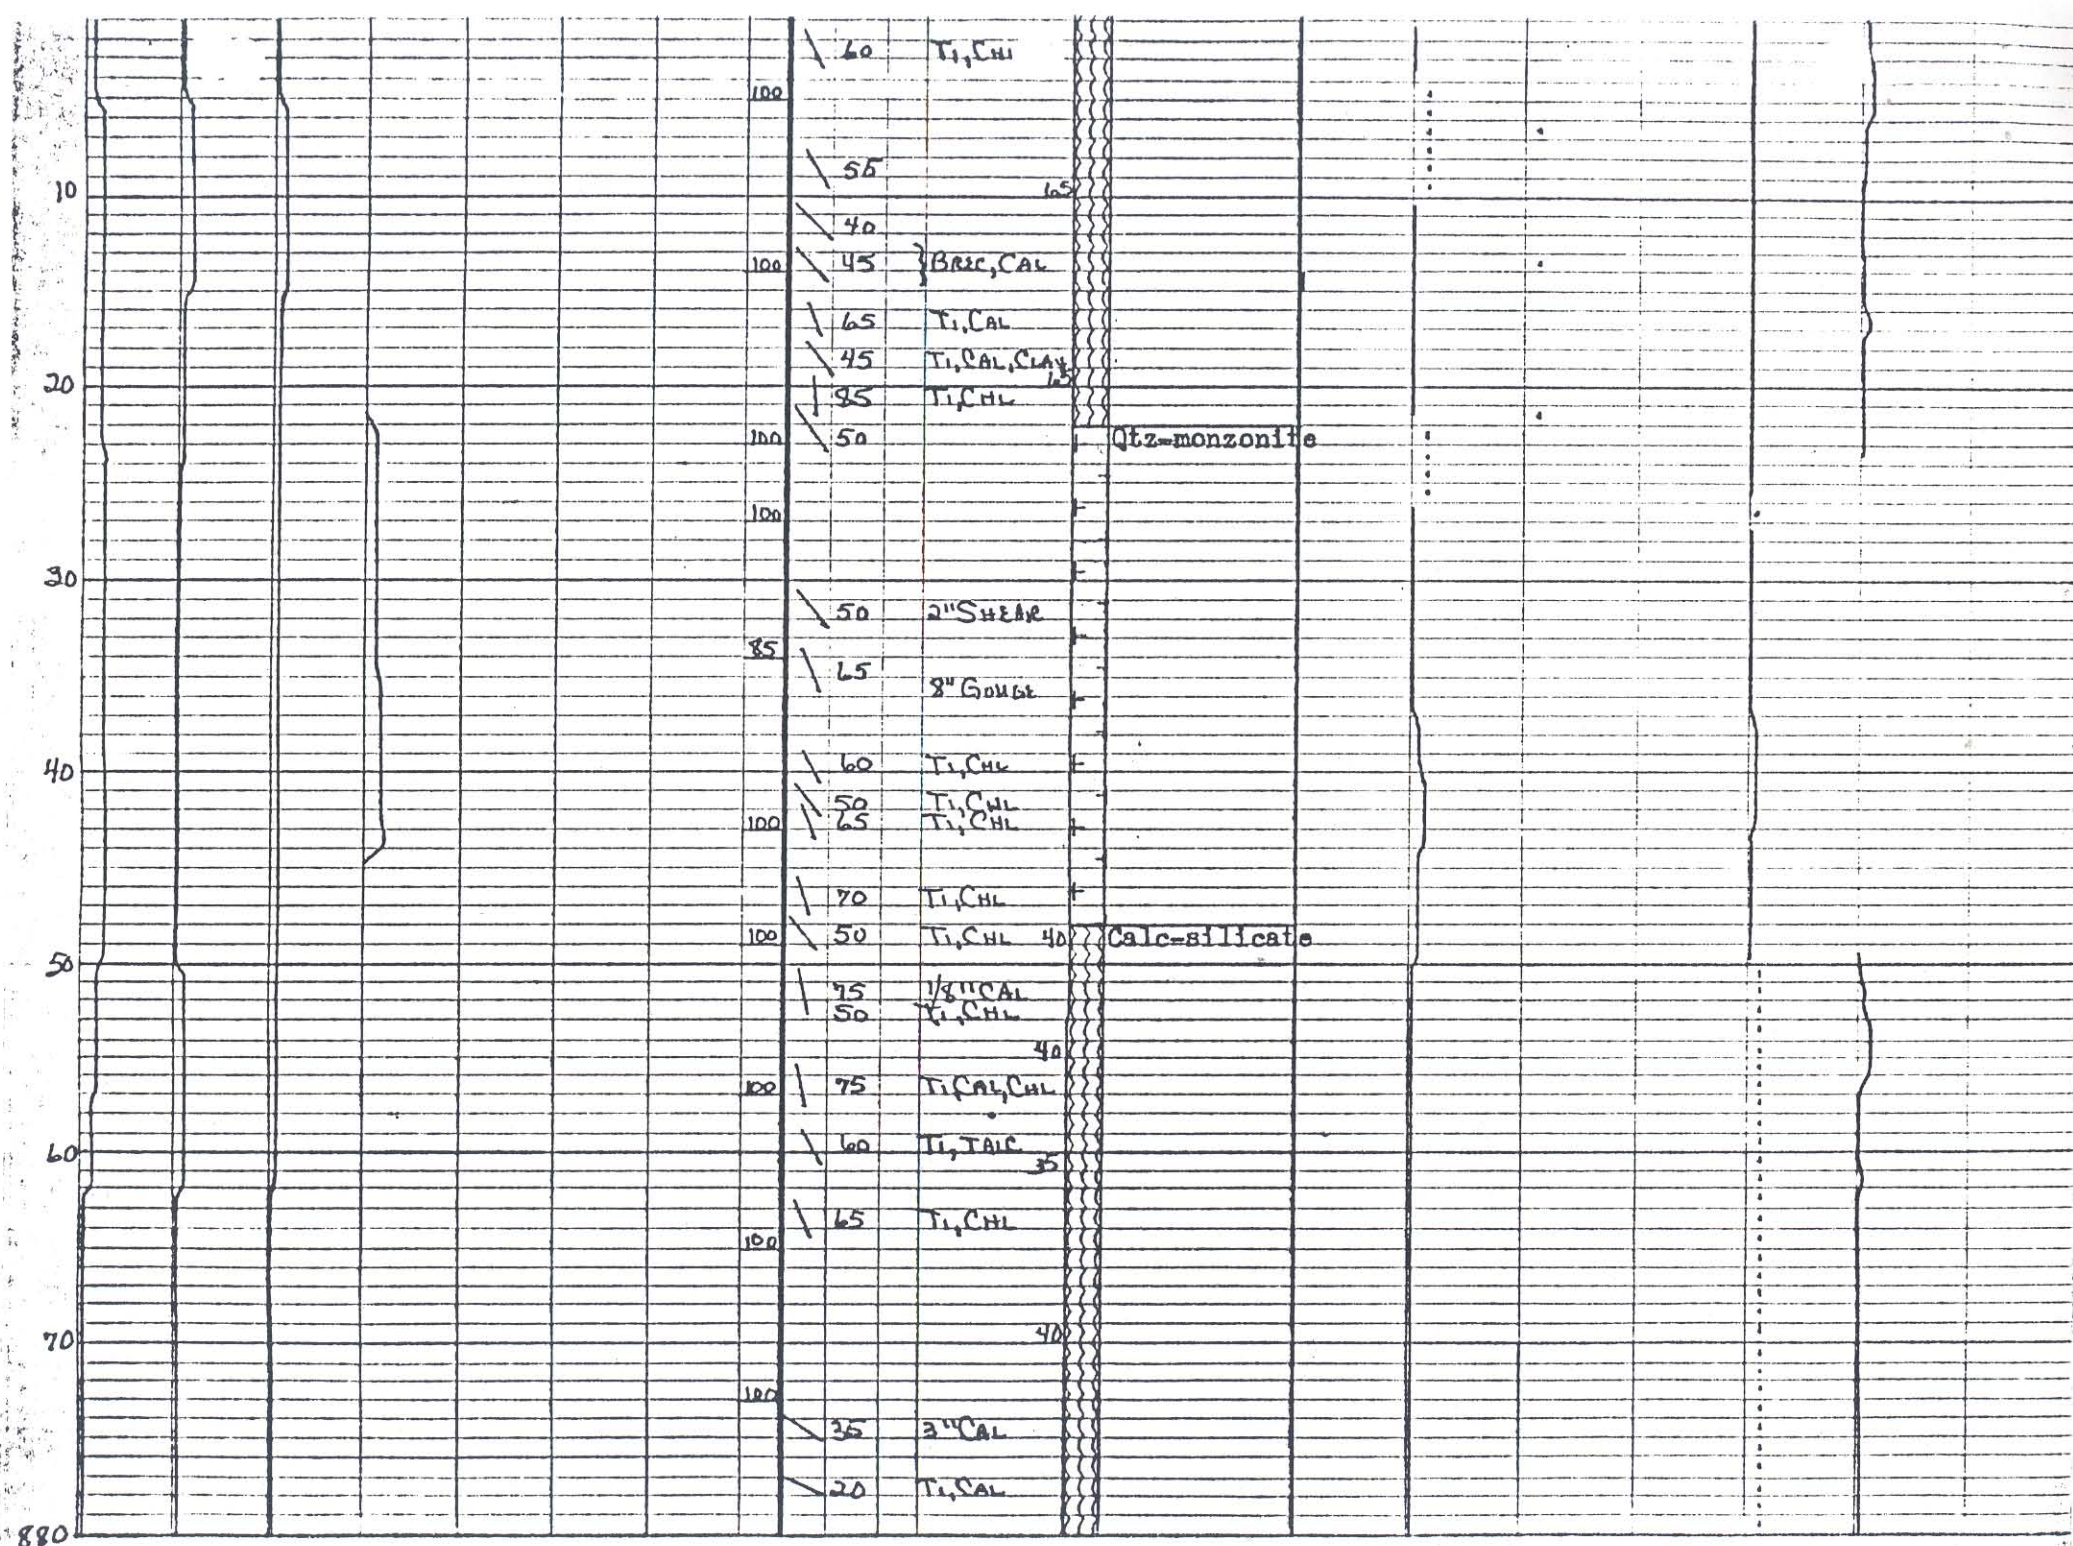 60 Ti, CHl
100
55
10 65
40
100 45 } BREC, CAL
65 Ti, CAL
45 Ti, CAL, CLAY
20 65
85 Ti, CHL
100 50 Qtz-monzonite
100
30
50 2" SHEAR
85
65
8" GOUGE
40 60 Ti, CHL
50 Ti, CHL
100 65 Ti, CHL
70 Ti, CHL
100 50 Ti, CHL 40 Calc-silicate
50
75 1/8" CAL
50 Ti, CHL
40
100 75 Ti, CAL, CHL
60 60 Ti, TALC
35
65 Ti, CHL
100
70 40
100
35 3" CAL
20 Ti, CAL
880